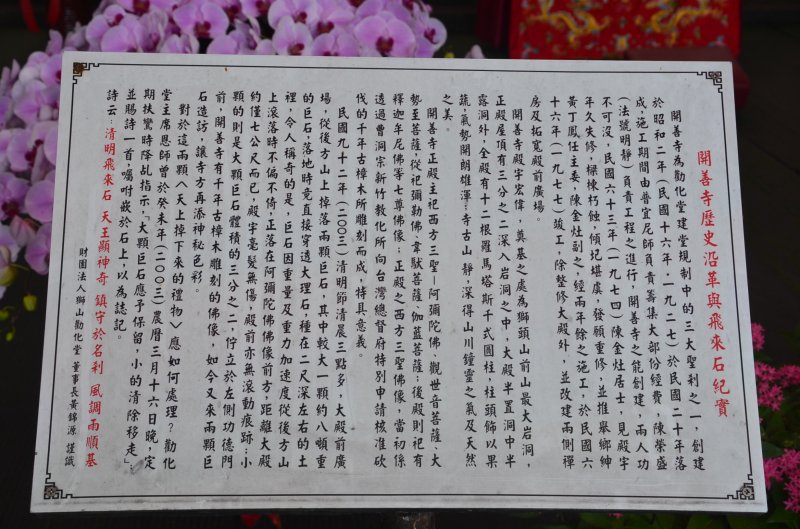 開善寺歷史沿革與飛來石紀實
開善寺為勸化堂建堂規制中的三大聖利之一，創建
於昭和二年（民國十六年，一九二七）於民國二十年落
成，施工期間由普宜尼師負責籌集大部份經費，陳榮盛
（法號明靜）負責工程之進行，開善寺之能創建，兩人功
不可沒，民國六十三年（一九七四）陳金灶居士，見殿宇
年久失修，樑棟朽蝕，傾圮堪虞，發願重修，並推舉鄉紳
黃丁鳳任主委，陳金灶副之，經兩年餘之施工，於民國六
十六年（一九七七）竣工，除整修大殿外，並改建兩側禪
房及拓寬殿前廣場。
開善寺殿宇宏偉，奠基之處為獅頭山前山最大岩洞，
正殿屋頂有三分之二深入岩洞之中，大殿半置洞中半
露洞外，全殿有十二根羅馬塔斯干式圓柱，柱頭飾以果
蔬，氣勢開朗雄渾；寺古山靜，深得山川鐘靈之氣及天然
之美。
開善寺正殿主祀西方三聖—阿彌陀佛、觀世音菩薩、大
勢至菩薩，從祀彌勒佛、韋馱菩薩、伽藍菩薩；後殿則祀有
釋迦牟尼佛等七尊佛像；正殿之西方三聖佛像，當初係
透過曹洞宗新竹教化所向台灣總督府特別申請核准砍
伐的千年古樟木所雕刻而成，持具意義。
民國九十二年（二００三）清明節清晨三點多，大殿前廣
場，從後方山上掉落兩顆巨石，其中較大一顆約八噸重
的巨石，落地時竟直接穿透大理石，種在二尺深左右的土
裡，令人稱奇的是，巨石因重量及重力加速度從後方山
上滾落時不偏不倚，正落在阿彌陀佛佛像前方，距離大殿
約僅七公尺而已，殿宇毫髮無傷，殿前亦無滾動痕跡；小
顆的則是大顆巨石體積的三分之二，佇立於左側功德門
前，開善寺有千年古樟木雕刻的佛像，如今又來兩顆巨
石造訪，讓寺方再添神秘色彩。
對於這兩顆〈天上掉下來的禮物〉應如何處理？勸化
堂主席恩師曾於癸未年（二００三）農曆三月十六日晚，定
期扶鸞時降乩指示，「大顆巨石應予保留，小的清除移走」；
並賜詩一首；囑咐嵌於石上，以為誌記。
詩云 清明飛來石 天王顯神奇 鎮守於名剎 風調雨順基
財團法人獅山勸化堂 董事長黃錦源 謹識